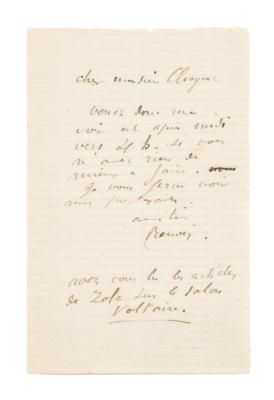 cher monsieur Choquet
venez donc me
voir cet après midi
vers 4 h. si vous
n'avez rien de
mieux à faire.
Je vous ferai voir
mes portraits.
amitiés
Renoir.
avez vous lu les articles
de Zola sur le salon
Voltaire.